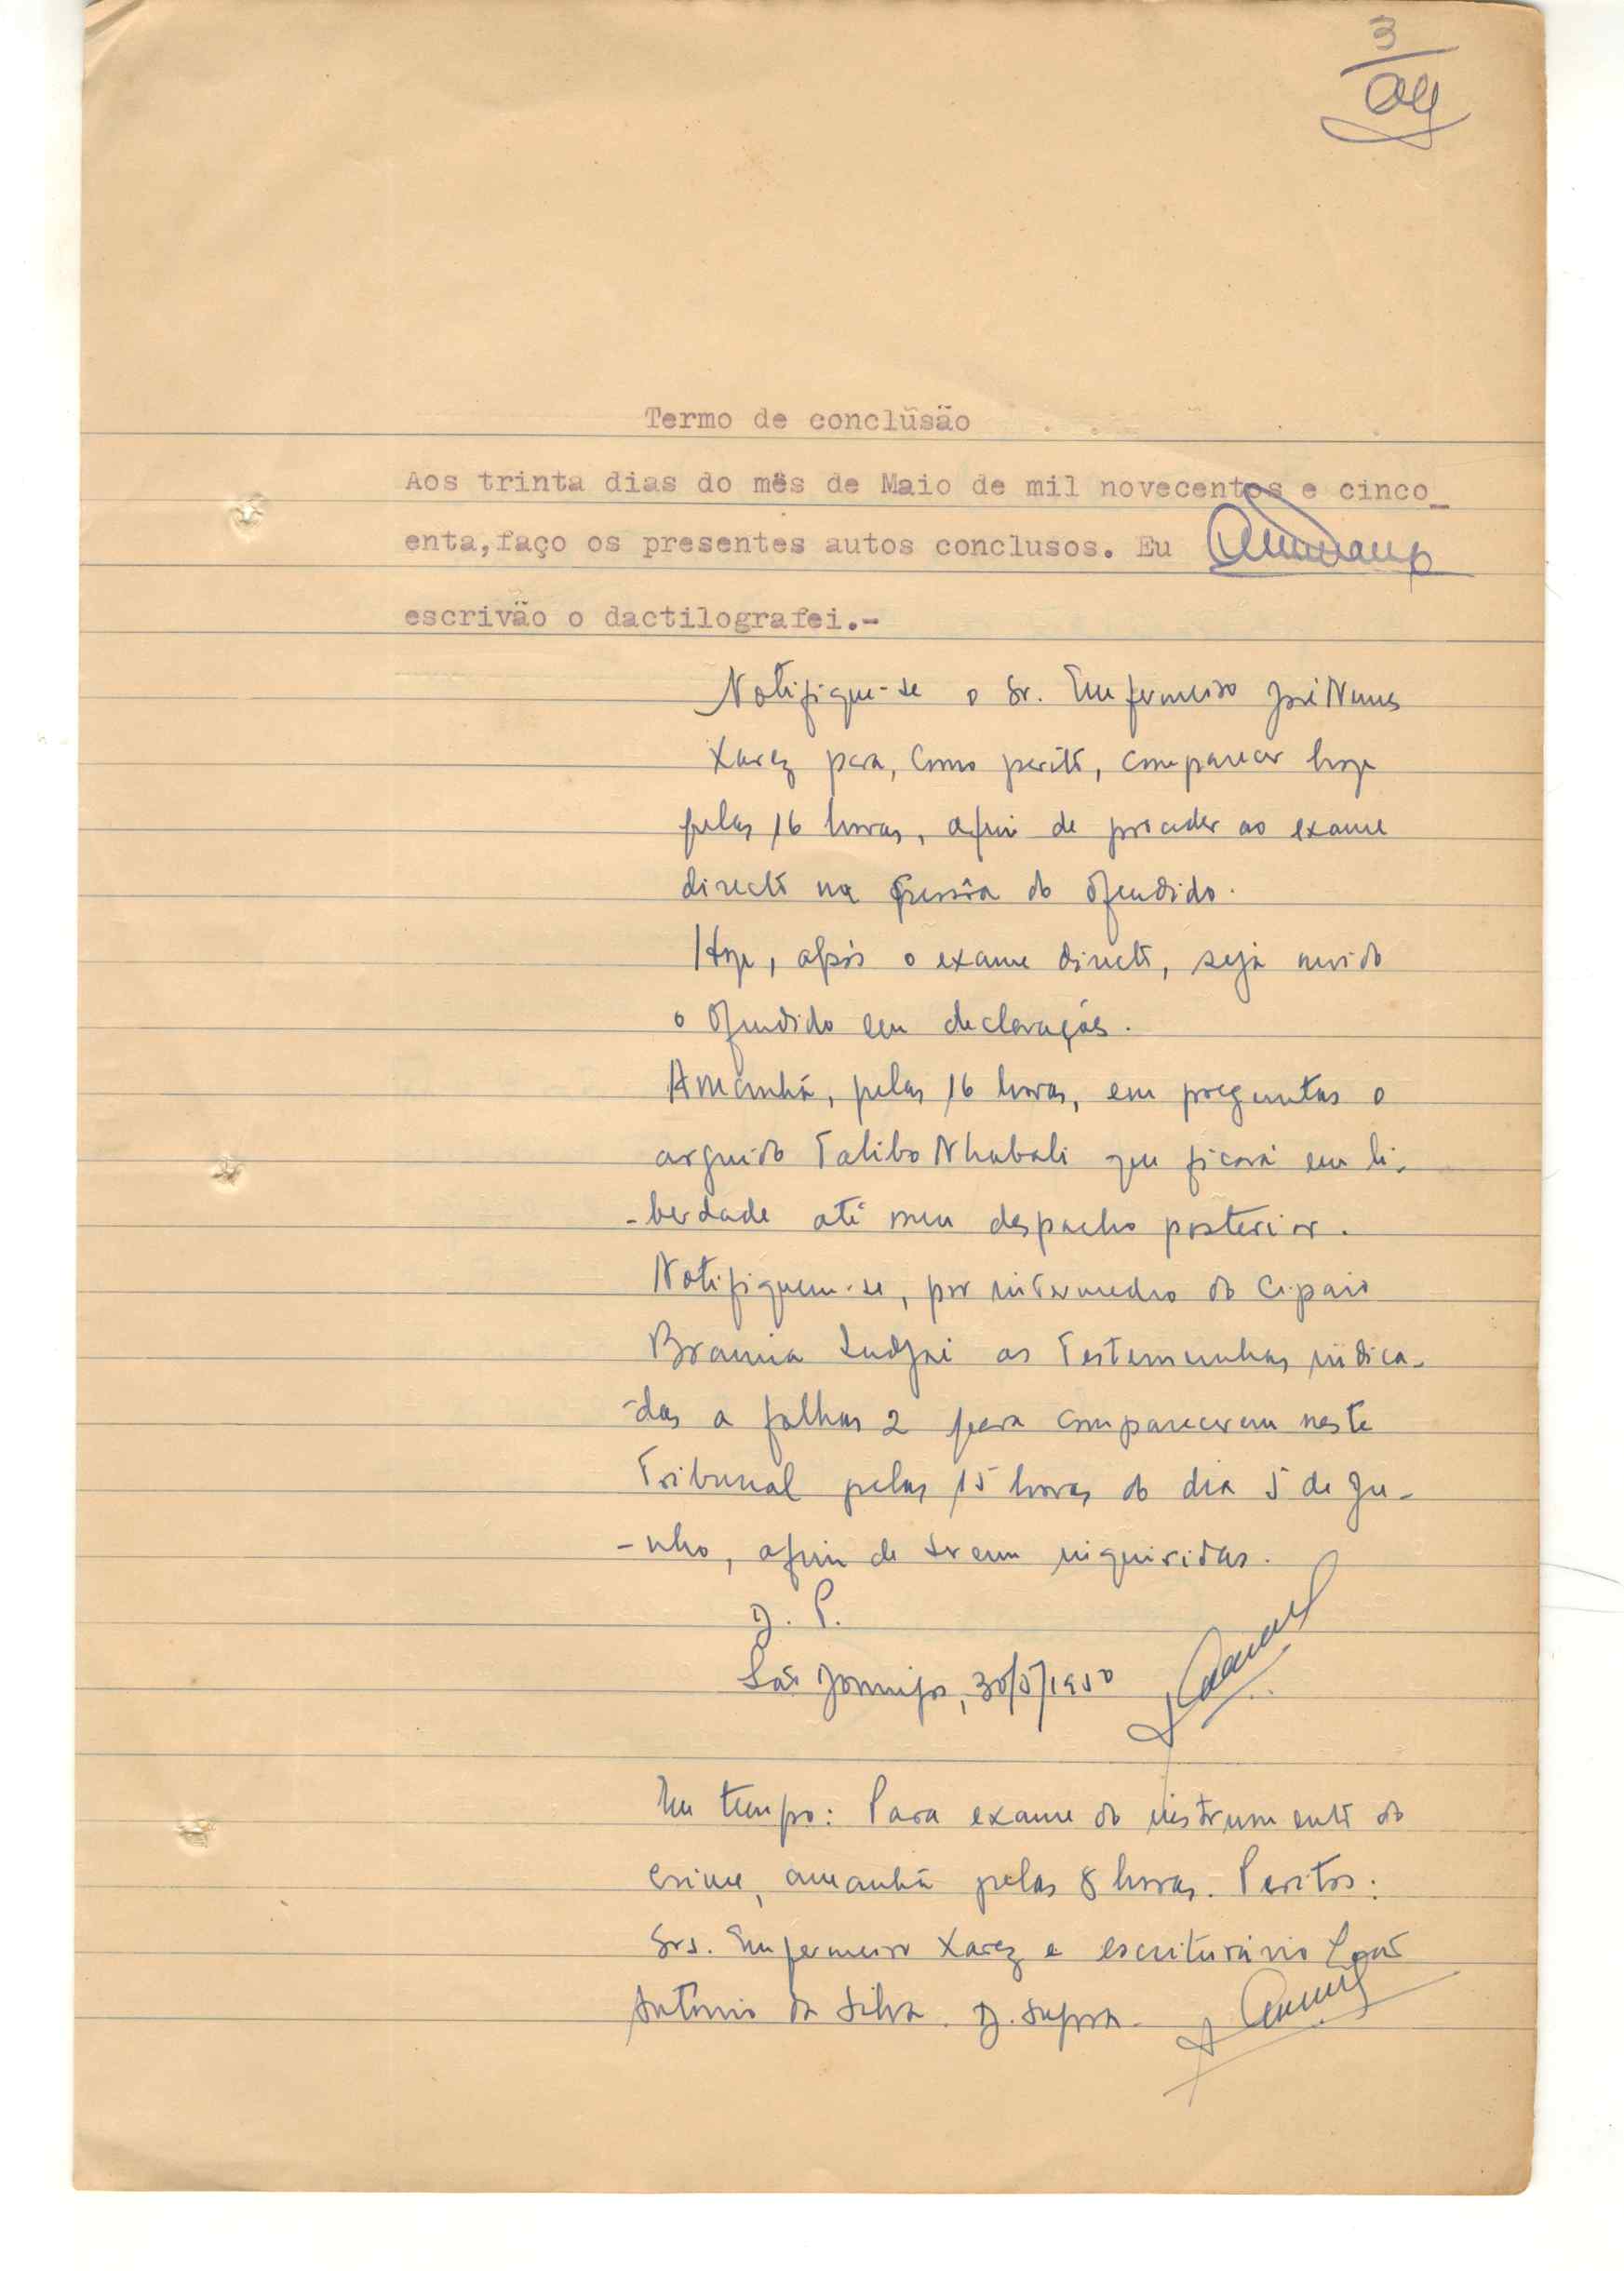 3
Termo de conclusão
Aos trinta dias do mês de Maio de mil novecentos e cinco_
enta,faço os presentes autos conclusos. Eu
escrivão o dactilografei.-
Notifique-se o Sr. Enfermeiro José Nunes
Xarez para, como perito, comparecer hoje
pelas 16 horas, afim de proceder ao exame
directo na pessôa do ofendido.
Hoje, após o exame directo, seja ouvido
o ofendido em declarações.
Amanhã, pelas 16 horas, em preguntas o
arguido Talibo Nhabali que ficará em li-
-berdade até meu despacho posterior.
Notifiquem-se, por intermedio do Cipaio
Brama as testemunhas indica-
-das a folhas 2 para comparecerem neste
Tribunal pelas 15 horas do dia 5 de Ju-
-nho, afim de serem inquiridas.
D. P.
São Domingos, 30/5/1950
Em tempo: Para exame do instrumento do
crime, amanhã pelas 8 horas. Peritos:
Srs. Enfermeiro Xarez e escriturário
António da Silva. D. supra.